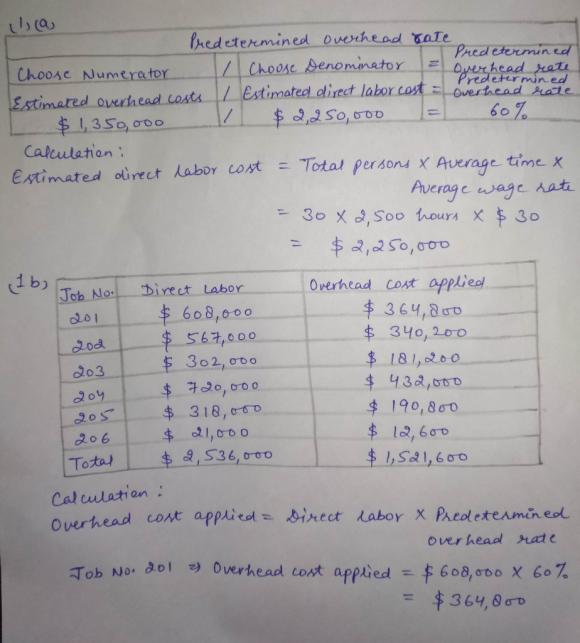 (1)(a)
Predetermined overhead rate
Choose Numerator / Choose Denominator = Predetermined Overhead rate
Estimated overhead costs / Estimated direct labor cost = Predetermined overhead rate
$ 1,350,000 / $ 2,250,000 = 60%
Calculation :
Estimated direct labor cost = Total persons X Average time X
Average wage rate
= 30 X 2,500 hours X $ 30
= $ 2,250,000
(1b)
Job No. Direct Labor Overhead cost applied
201 $ 608,000 $ 364,800
202 $ 567,000 $ 340,200
203 $ 302,000 $ 181,200
204 $ 720,000 $ 432,000
205 $ 318,000 $ 190,800
206 $ 21,000 $ 12,600
Total $ 2,536,000 $ 1,521,600
Calculation :
Overhead cost applied = Direct labor X Predetermined
overhead rate
Job No. 201 ⇒ Overhead cost applied = $ 608,000 X 60%
= $ 364,800